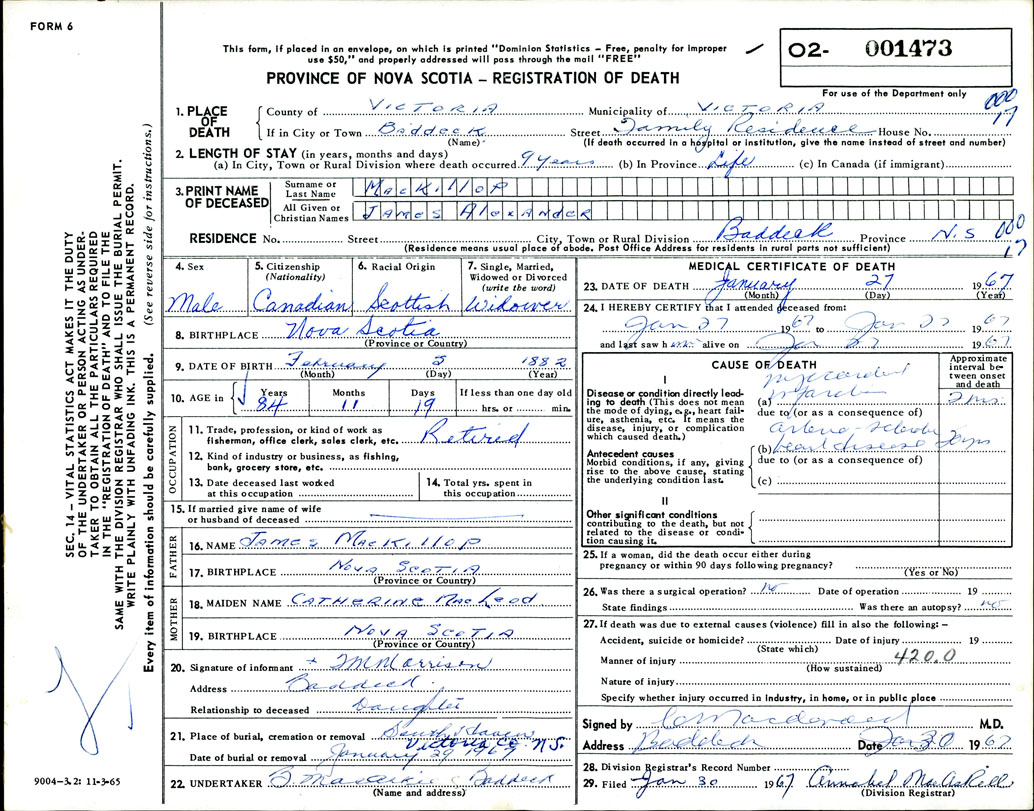 FORM 6
This form, if placed in an envelope, on which is printed "Dominion Statistics – Free, penalty for improper
use $50," and properly addressed will pass through the mail "FREE"
O2- 001473
For use of the Department only
PROVINCE OF NOVA SCOTIA – REGISTRATION OF DEATH
000
17
1. PLACE OF DEATH
County of Victoria Municipality of Victoria
If in City or Town Baddeck Street Family Residence House No.
(Name) (If death occurred in a hospital or institution, give the name instead of street and number)
2. LENGTH OF STAY (in years, months and days)
(a) In City, Town or Rural Division where death occurred 9 years (b) In Province Life (c) In Canada (if immigrant)
3. PRINT NAME OF DECEASED
Surname or Last Name MacKillop
All Given or Christian Names James Alexander
RESIDENCE No. Street City, Town or Rural Division Baddeck Province N.S
000
17
(Residence means usual place of abode. Post Office Address for residents in rural parts not sufficient)
4. Sex
Male
5. Citizenship
(Nationality)
Canadian
6. Racial Origin
Scottish
7. Single, Married,
Widowed or Divorced
(write the word)
Widower
8. BIRTHPLACE Nova Scotia
(Province or Country)
9. DATE OF BIRTH February 5 1882
(Month) (Day) (Year)
10. AGE in
Years Months Days If less than one day old
84 11 19 hrs. or min.
OCCUPATION
11. Trade, profession, or kind of work as
fisherman, office clerk, sales clerk, etc. Retired
12. Kind of industry or business, as fishing,
bank, grocery store, etc.
13. Date deceased last worked
at this occupation
14. Total yrs. spent in
this occupation
15. If married give name of wife
or husband of deceased
FATHER
16. NAME James MacKillop
17. BIRTHPLACE Nova Scotia
(Province or Country)
MOTHER
18. MAIDEN NAME Catherine MacLeod
19. BIRTHPLACE Nova Scotia
(Province or Country)
20. Signature of informant + Morrison
Address Baddeck
Relationship to deceased Daughter
21. Place of burial, cremation or removal South Haven
Victoria Co. N.S.
Date of burial or removal January 29 1967
22. UNDERTAKER Baddeck
(Name and address)
MEDICAL CERTIFICATE OF DEATH
23. DATE OF DEATH January 27 1967
(Month) (Day) (Year)
24. I HEREBY CERTIFY that I attended deceased from:
Jan 27 1967 to Jan 27 1967
and last saw h alive on Jan 27 1967
CAUSE OF DEATH
Approximate
interval be-
tween onset
and death
I
Disease or condition directly lead-
ing to death (This does not mean
the mode of dying, e.g., heart fail-
ure, asthenia, etc. It means the
disease, injury, or complication
which caused death.)
myocardial
(a) infarction 2 hrs.
due to (or as a consequence of)
Antecedent causes
Morbid conditions, if any, giving
rise to the above cause, stating
the underlying condition last.
(b) heart disease yrs
due to (or as a consequence of)
(c)
II
Other significant conditions
contributing to the death, but not
related to the disease or condi-
tion causing it.
25. If a woman, did the death occur either during
pregnancy or within 90 days following pregnancy?
(Yes or No)
26. Was there a surgical operation? no Date of operation 19
State findings Was there an autopsy? no
27. If death was due to external causes (violence) fill in also the following: –
Accident, suicide or homicide? Date of injury 19
(State which)
Manner of injury 420.0
(How sustained)
Nature of injury
Specify whether injury occurred in industry, in home, or in public place
Signed by C Macdonald M.D.
Address Baddeck Date Jan 30 1967
28. Division Registrar's Record Number
29. Filed Jan 30 1967 Annabel MacAskill
(Division Registrar)
SEC. 14 – VITAL STATISTICS ACT MAKES IT THE DUTY
OF THE UNDERTAKER OR PERSON ACTING AS UNDER-
TAKER TO OBTAIN ALL THE PARTICULARS REQUIRED
IN THE "REGISTRATION OF DEATH" AND TO FILE THE
SAME WITH THE DIVISION REGISTRAR WHO SHALL ISSUE THE BURIAL PERMIT.
WRITE PLAINLY WITH UNFADING INK. THIS IS A PERMANENT RECORD.
Every item of information should be carefully supplied. (See reverse side for instructions.)
9004–3.2: 11-3-65